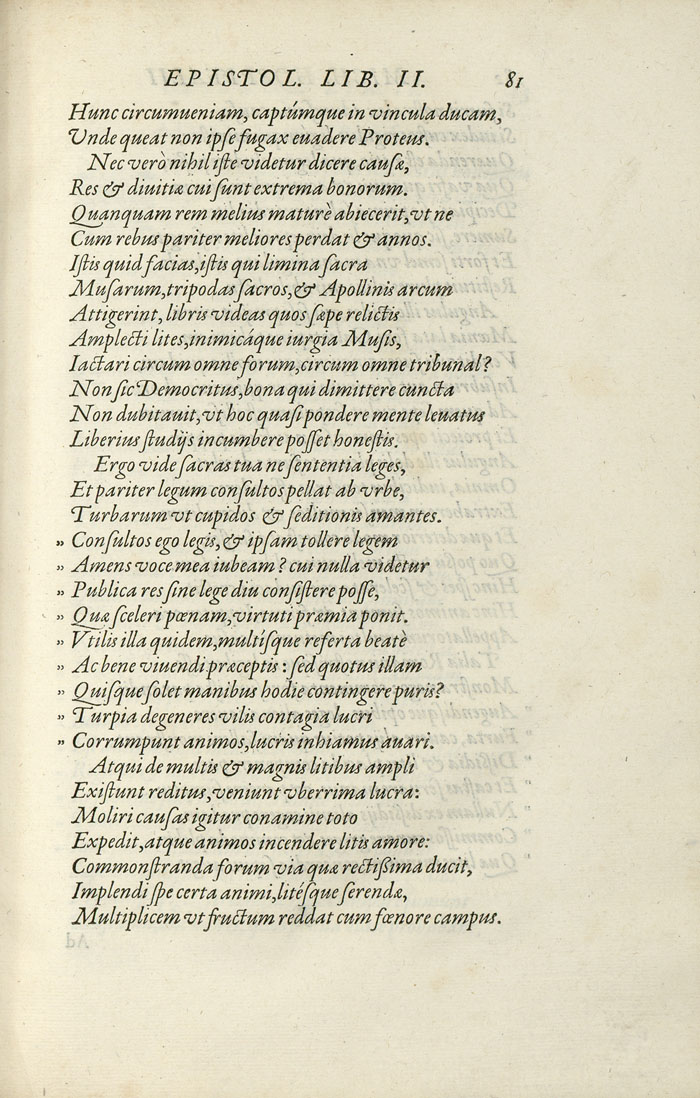 EPISTOL. LIB. II. 81
Hunc circumueniam, captúmque in vincula ducam,
Vnde queat non ipse fugax euadere Proteus.
Nec verò nihil iste videtur dicere causæ,
Res & diuitiæ cui sunt extrema bonorum.
Quanquam rem melius maturè abiecerit, vt ne
Cum rebus pariter meliores perdat & annos.
Istis quid facias, istis qui limina sacra
Musarum, tripodas sacros, & Apollinis arcum
Attigerint, libris videas quos sæpe relictis
Amplecti lites, inimicáque iurgia Musis,
Iactari circum omne forum, circum omne tribunal?
Non sic Democritus, bona qui dimittere cuncta
Non dubitauit, vt hoc quasi pondere mente leuatus
Liberius studijs incumbere posset honestis.
Ergo vide sacras tua ne sententia leges,
Et pariter legum consultos pellat ab vrbe,
Turbarum vt cupidos & seditionis amantes.
" Consultos ego legis, & ipsam tollere legem
" Amens voce mea iubeam? cui nulla videtur
" Publica res sine lege diu consistere posse,
" Quæ sceleri pœnam, virtuti præmia ponit.
" Vtilis illa quidem, multísque referta beatè
" Ac bene viuendi præceptis: sed quotus illam
" Quisque solet manibus hodie contingere puris?
" Turpia degeneres vilis contagia lucri
" Corrumpunt animos, lucris inhiamus auari.
Atqui de multis & magnis litibus ampli
Existunt reditus, veniunt vberrima lucra:
Moliri causas igitur conamine toto
Expedit, atque animos incendere litis amore:
Commonstranda forum via quæ rectißima ducit,
Implendi spe certa animi, litésque serendæ,
Multiplicem vt fructum reddat cum fœnore campus.